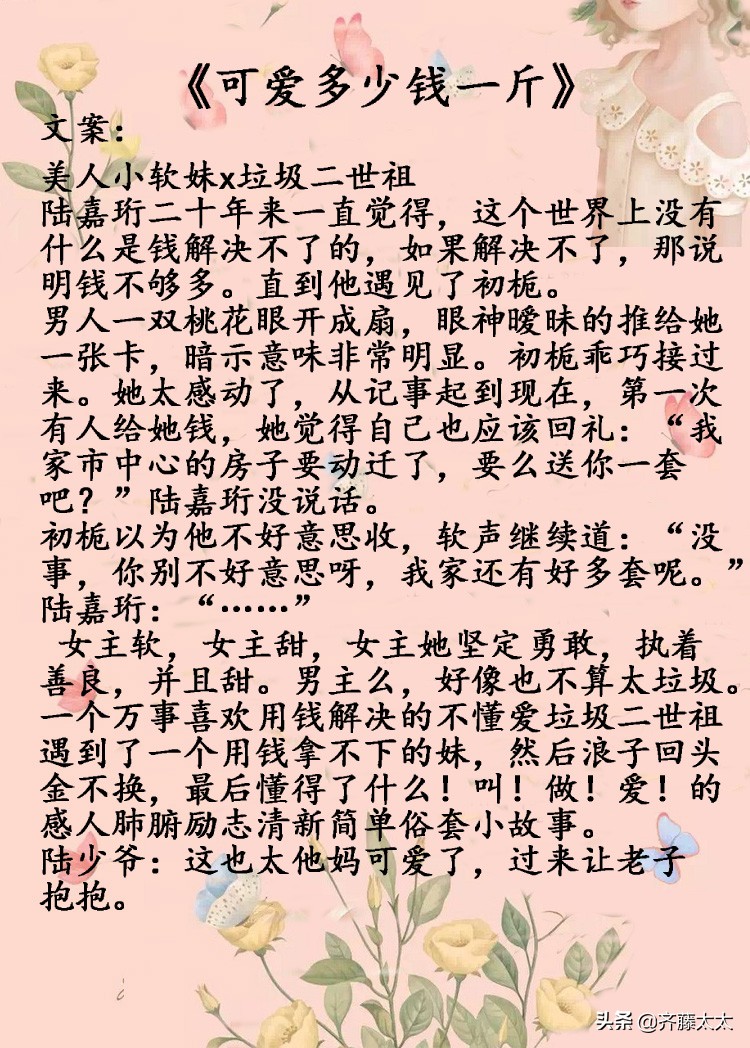 《可爱多少钱一斤》
文案：
美人小软妹x垃圾二世祖
陆嘉珩二十年来一直觉得，这个世界上没有
什么是钱解决不了的，如果解决不了，那说
明钱不够多。直到他遇见了初栀。
男人一双桃花眼开成扇，眼神暧昧的推给她
一张卡，暗示意味非常明显。初栀乖巧接过
来。她太感动了，从记事起到现在，第一次
有人给她钱，她觉得自己也应该回礼：“我
家市中心的房子要动迁了，要么送你一套
吧？”陆嘉珩没说话。
初栀以为他不好意思收，软声继续道：“没
事，你别不好意思呀，我家还有好多套呢。”
陆嘉珩：“……”
女主软，女主甜，女主她坚定勇敢，执着
善良，并且甜。男主么，好像也不算太垃圾。
一个万事喜欢用钱解决的不懂爱垃圾二世祖
遇到了一个用钱拿不下的妹，然后浪子回头
金不换，最后懂得了什么！叫！做！爱！的
感人肺腑励志清新简单俗套小故事。
陆少爷：这也太他妈可爱了，过来让老子
抱抱。
头条 @齐藤太太